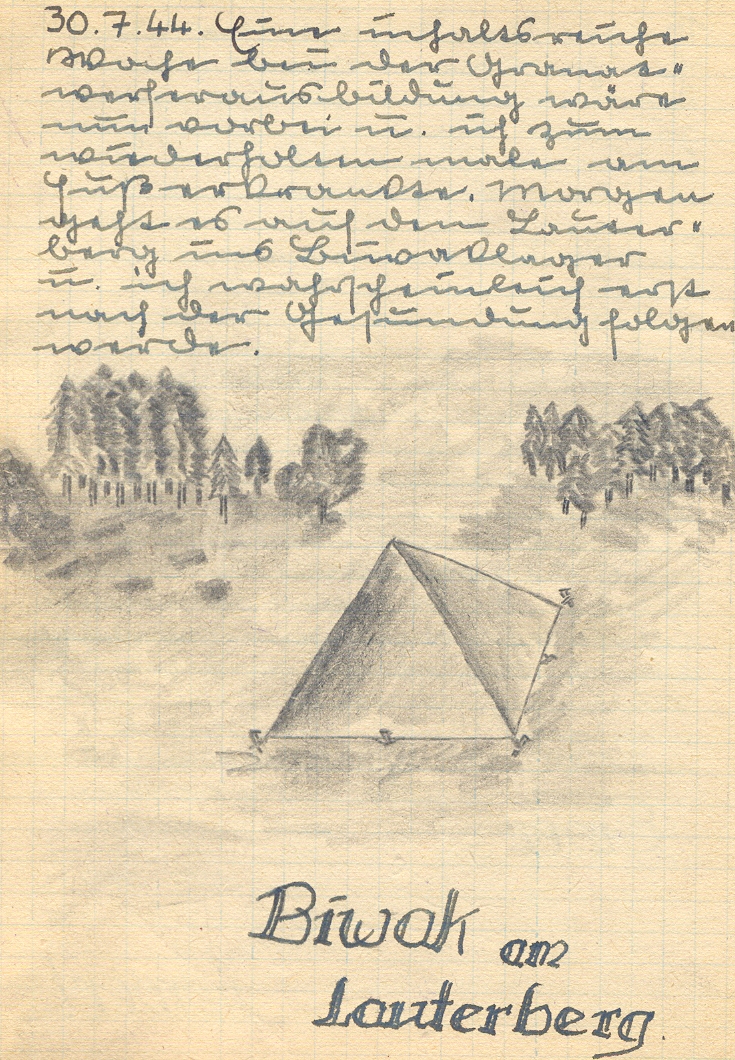 30.7.44. Eine inhaltsreiche
Woche bei der Granat"
werferausbildung wäre
nun vorbei u. ich zum
wiederholten male am
Fuß erkrankte. Morgen
geht es auf den Lauter"
berg ins Biwaklager
u. ich wahrscheinleich erst
nach der Gesundung folgen
werde.
Biwak am
Lauterberg.